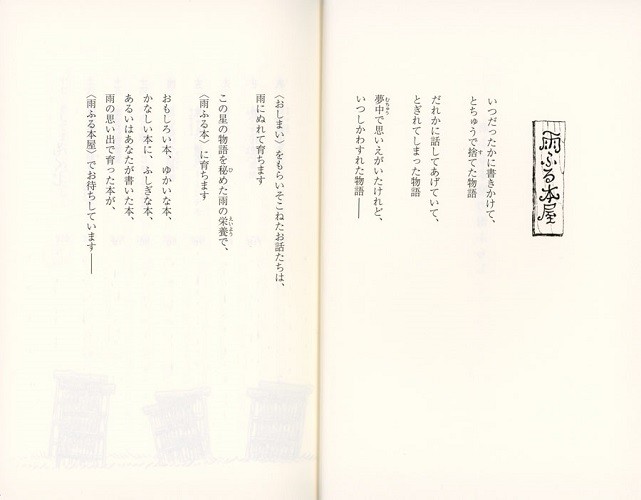 雨ふる本屋
いつだったかに書きかけて、
とちゅうで捨てた物語
だれかに話してあげていて、
とぎれてしまった物語
夢中で思いえがいたけれど、
いつしかわすれた物語――
〈おしまい〉をもらいそこねたお話たちは、
雨にぬれて育ちます
この星の物語を秘めた雨の栄養で、
〈雨ふる本〉に育ちます
おもしろい本、ゆかいな本、
かなしい本に、ふしぎな本、
あるいはあなたが書いた本、
雨の思い出で育った本が、
〈雨ふる本屋〉でお待ちしています――